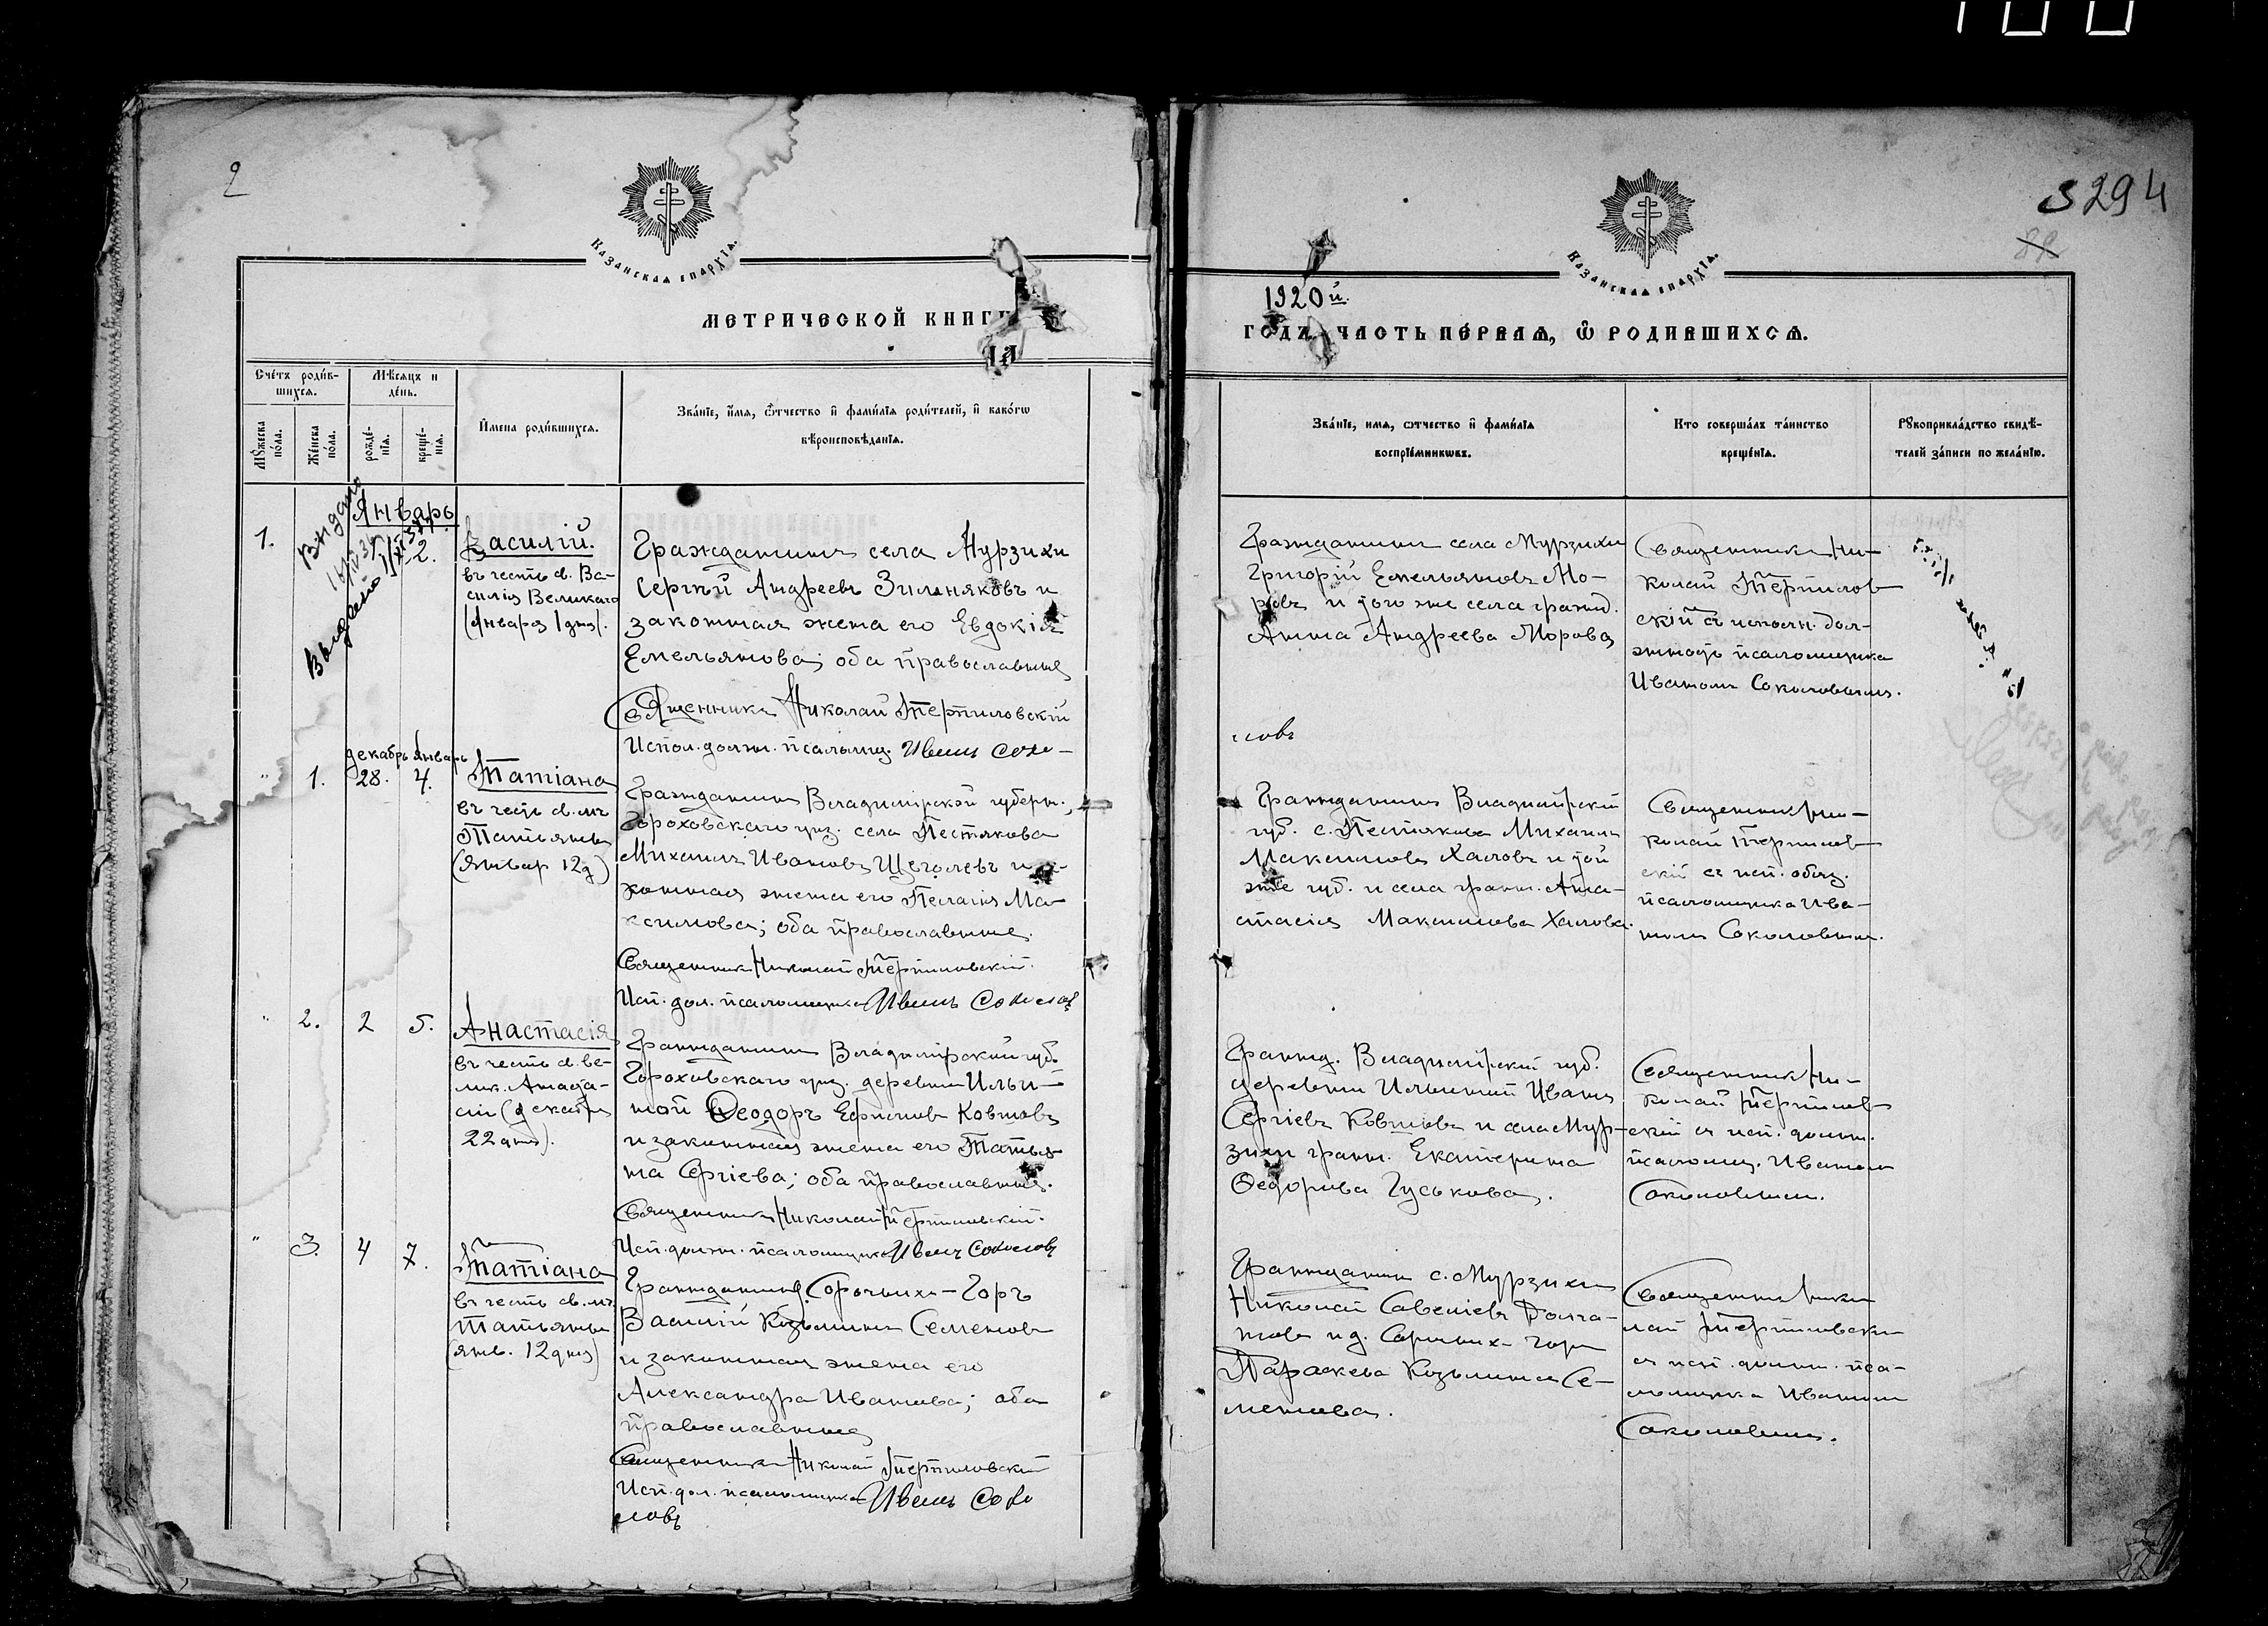 2
Казанская епархїѧ.
МЕТРИЧЕСКОЙ КНИГИ
Счётъ роди́в-
шихсѧ.
Мѣ́сѧцъ и
де́нь.
Мꙋ́жеска
по́ла.
Же́нска
по́ла.
рожде́-
нїѧ.
креще́-
нїѧ.
И҆мена роди́вшихсѧ.
Зва́нїе, и҆́мѧ, ѻ҆́тчество и҆ фами́лїѧ роди́телей, и҆ како́гѡ
вѣроисповѣ́данїѧ.
Январь
1.
Выдано
Выдано
2.
Василій.
въ честь св. Ва-
силія Великаго
(января 1 дня).
Гражданинъ села Мурзихи
Сергѣй Андреевъ Зильняковъ и
законная жена его Евдокія
Емельянова; оба православные
Священникъ Николай Терпиловскій
Испол. должн. псаломщ. Иванъ Соко-
декабрь Январь
" 1. 28. 4.
Татіана
въ честь св. мч.
Татьяны
(январ 12 д)
Гражданинъ Владимірской губерн.,
Гороховскаго уѣз. села Пестякова
Михаилъ Ивановъ Щеголевъ и за-
конная жена его Пелагія Ма-
ксимова; оба православные.
Священникъ Николай Терпиловскій.
Исп. дол. псаломщика Иванъ Соколовъ
" 2. 2 5.
Анастасія
въ честь св. ве-
лик. Анаста-
сіи (декабря
22 дня).
Гражданинъ Владимірской губ.
Гороховскаго уѣз. деревни Ильи-
ной Ѳеодоръ Ефимовъ Ковшовъ
и законная жена его Татья-
на Сергіева; оба православные.
Священникъ Николай Терпиловскій.
Исп. должн. псаломщика Иванъ Соколовъ
" 3. 4 7.
Татіана
въ честь св. мч.
Татьяны
(янв. 12 дня)
Гражданинъ Сорочьихъ-Горъ
Василій Козьминъ Семеновъ
и законная жена его
Александра Иванова; оба
православные
Священникъ Николай Терпиловскій
Исп. дол. псаломщика Иванъ Соко
ловъ
3294
82
Казанская епархїѧ.
1920й.
ГОДЪ, ЧАСТЬ ПЕ́РВАѦ, Ѽ РОДИВШИХСѦ.
Зва́нїе, имѧ, ѻтчество и҆ фами́лїѧ
воспрїе́мникѡвъ.
Кто соверша́лъ та́инство
креще́нїѧ.
Рꙋкоприкла́дство свидѣ́-
телей за́писи по жела́нїю.
Гражданинъ села Мурзихи
Григорій Емельяновъ Мо-
ровъ и того же села гражд.
Анна Андреева Морова
Священникъ Ни-
колай Терпилов-
скій съ исполн. дол-
жность псаломщика
Иваномъ Соколовымъ.
ловъ
Гражданинъ Владимірской
губ. с. Пестякова Михаилъ
Максимовъ Халовъ и той
же губ. и села гражн. Ана-
стасія Максимова Халова.
Священникъ Ни-
колай Терпилов-
скій съ исп. обяз.
псаломщика Ива-
номъ Соколовым.
Гражд. Владимірской губ.
деревни Ильиной Иванъ
Сергіевъ Ковшовъ и села Мур-
зихи гражн. Екатерина
Ѳедорова Гуськова.
Священник Ни-
колай Терпилов-
скій съ исп. должн.
псаломщ. Иваномъ
Соколовымъ.
Гражданин с. Мурзихи
Николай Савеліевъ Долга-
новъ и д. Сорочьихъ-горъ
Параскева Козьмина Се-
менова.
Священникъ Нико
лай Терпиловскій
съ исп. должн. пса-
ломщика Иваномъ
Соколовымъ.